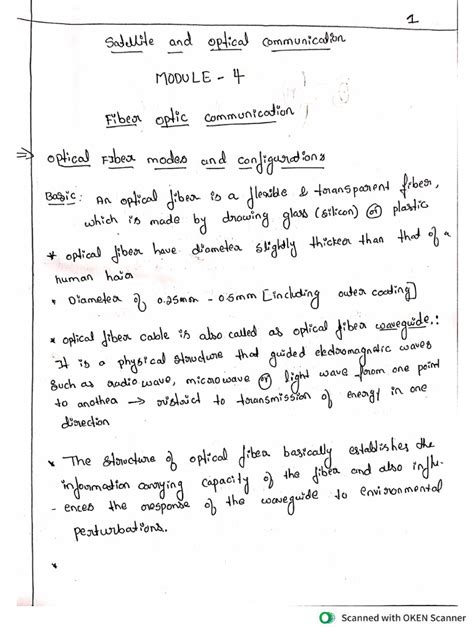 1
Satellite and optical communication
MODULE - 4
Fiber optic communication
⇒ optical Fiber modes and configurations
Basic: An optical fiber is a flexible & transparent fiber,
which is made by drawing glass (silicon) or plastic
* optical fiber have diameter slightly thicker than that of a
human hair
* Diameter of 0.25mm - 0.5mm [including outer coating]
* optical fiber cable is also called as optical fiber waveguide.:
It is a physical structure that guided electromagnetic waves
such as audio wave, microwave or light wave from one point
to another → ristrict to transmission of energy in one
direction
* The structure of optical fiber basically establishes the
information carrying capacity of the fiber and also influ-
-ences the response of the waveguide to environmental
perturbations.
*
Scanned with OKEN Scanner